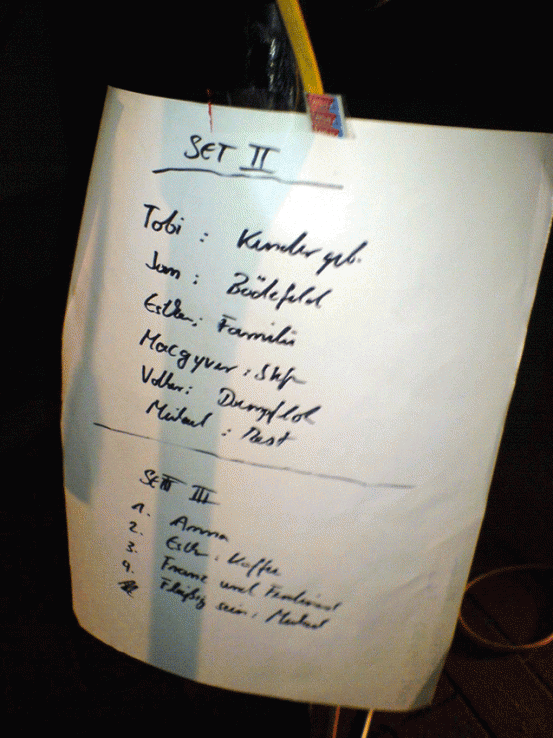 SET II
Tobi : Kindergeb.
Jan : Bödefeld
Esther: Familie
Macgyver :
Volker: Dampflok
Michael : Past
SET III
1. Anna
2. Esther: Kaffee
3. Franz und Ferdinand
4. Fleißig sein: Michael